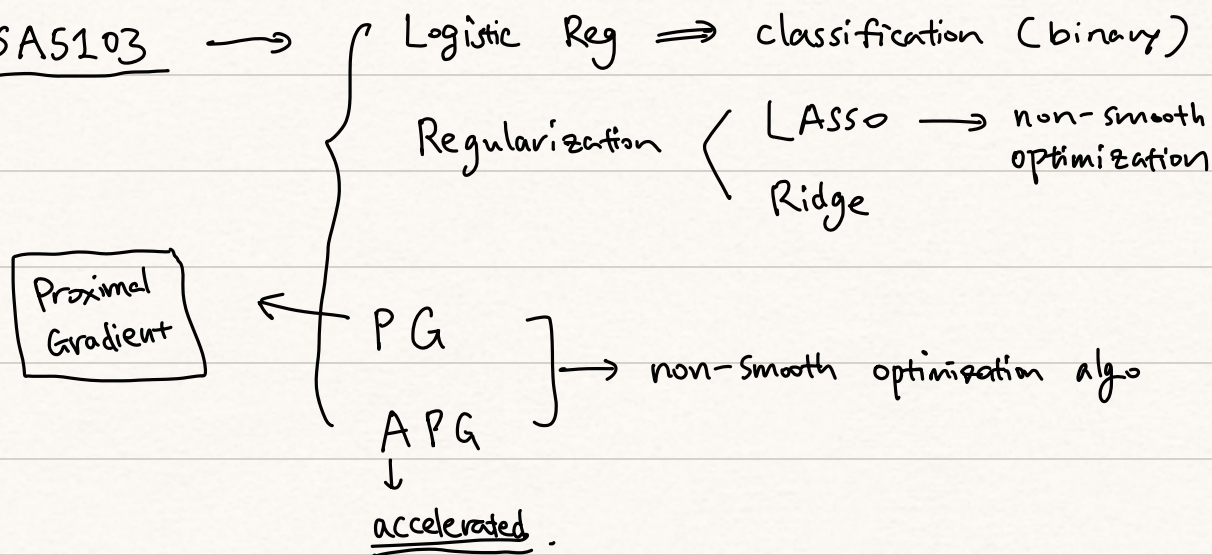 SA5103 → Logistic Reg ⇒ classification (binary)
Regularization
LASSO → non-smooth
optimization
Ridge
Proximal
Gradient
← PG
APG
→ non-smooth optimization algo
↓
accelerated.